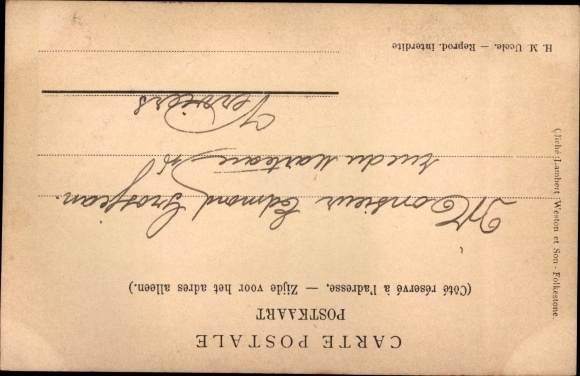 CARTE POSTALE
POSTKAART
(Côté réservé à l'adresse. — Zijde voor het adres alleen.)
Monsieur Edmond Grosjean
rue du Marteau
Verviers
H. M. Uccle. — Reprod. interdite
Cliché Lambert Weston et Son - Folkestone.